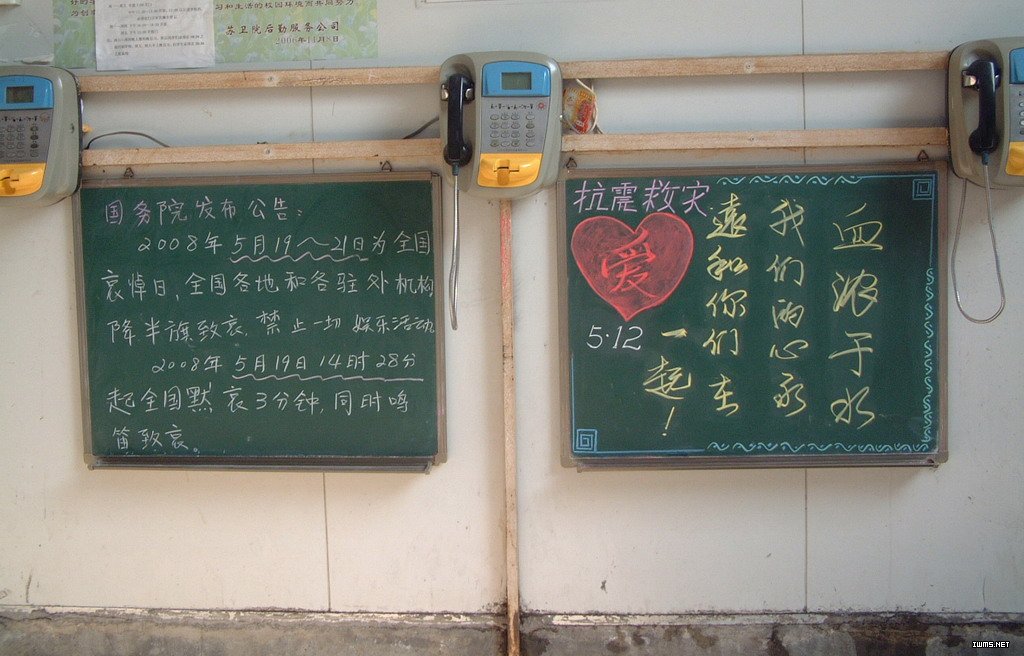 习和生活的校园环境而共同努力
苏卫院后勤服务公司
2006年11月8日
国务院发布公告:
2008年5月19～21日为全国
哀悼日,全国各地和各驻外机构
降半旗致哀.禁止一切娱乐活动
2008年5月19日14时28分
起全国默哀3分钟,同时鸣
笛致哀。
抗震救灾.
爱
5·12
血浓于水
我们的心永
远和你们在
一起!
IWMS.NET